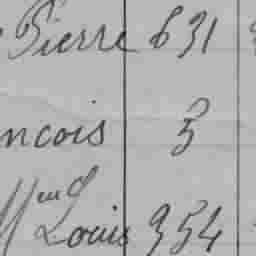 Pierre 631
ncois 5
Mme
Louis 354